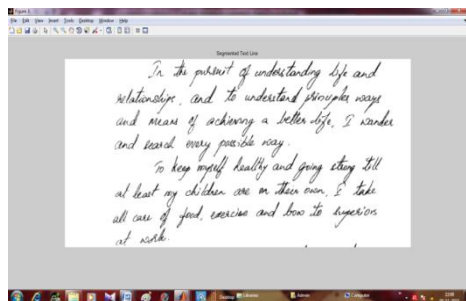 Figure 3
File Edit View Insert Tools Desktop Window Help
Segmented Text Line
In the pursuit of understanding life and
relationships, and to understand principles ways
and means of achieving a better life, I wander
and search every possible way.
To keep myself healthy and going strong till
at least my children are on their own, I take
all care of food, exercise and bow to superiors
at work.
Desktop Libraries Admin Computer